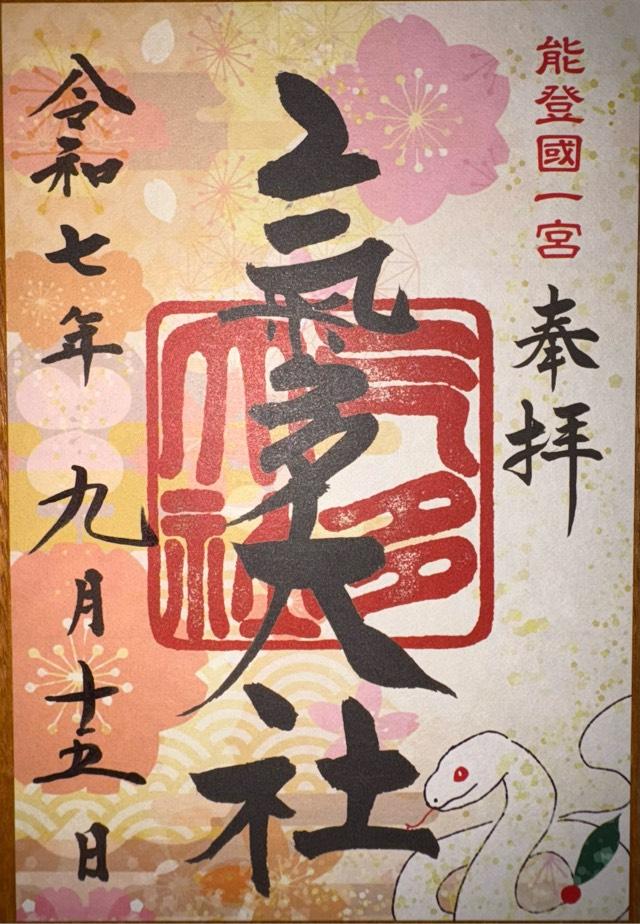 能登國一宮
奉拝
氣多大社
気多大社
令和七年九月十五日